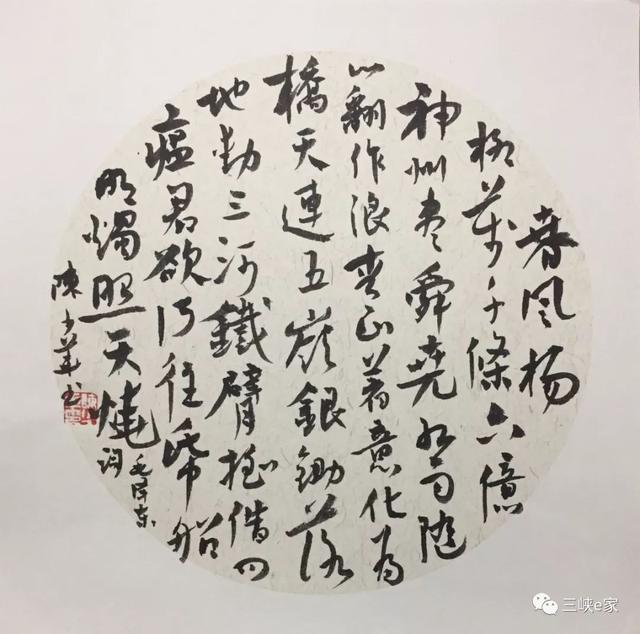 春风杨
柳萬千條六億
神州尽舜堯红雨随
心翻作浪青山着意化为
橋天連五嶺銀鋤落
地動三河鐵臂摇借问
瘟君欲何往纸船
明燭照天燒
毛泽东
词
陳少華书
三峡e家